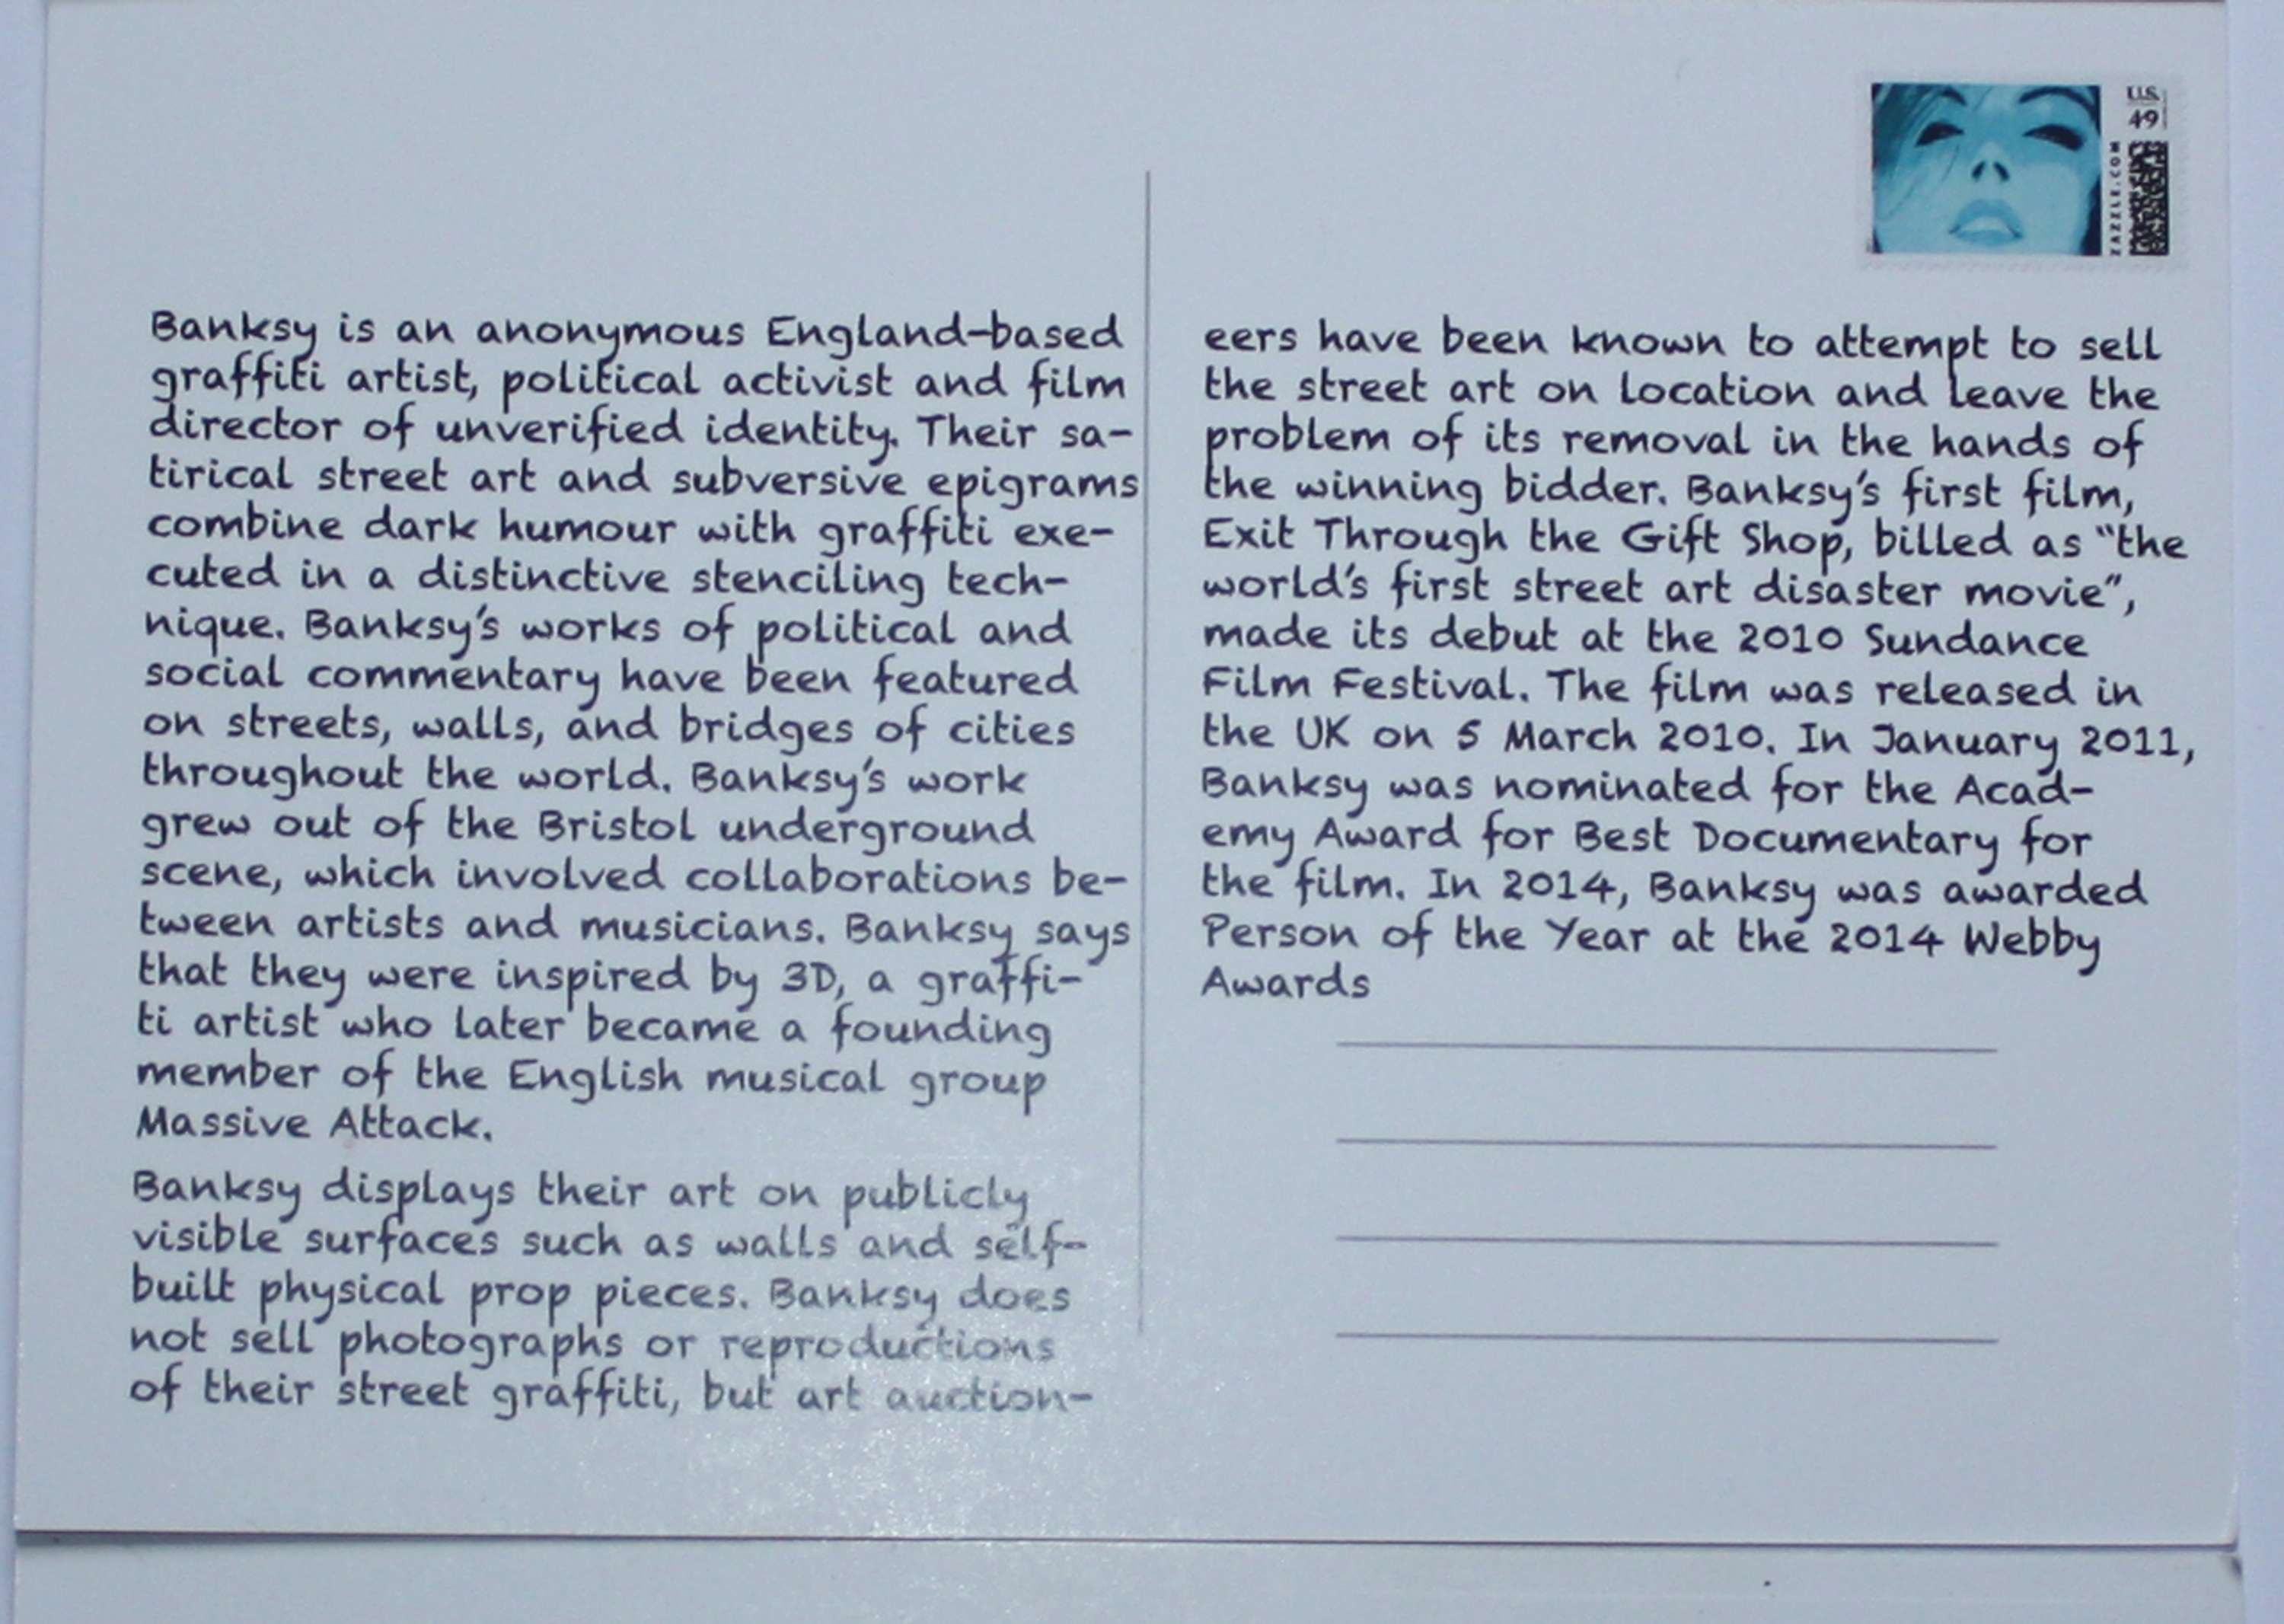 Banksy is an anonymous England-based
graffiti artist, political activist and film
director of unverified identity. Their sa-
tirical street art and subversive epigrams
combine dark humour with graffiti exe-
cuted in a distinctive stenciling tech-
nique. Banksy's works of political and
social commentary have been featured
on streets, walls, and bridges of cities
throughout the world. Banksy's work
grew out of the Bristol underground
scene, which involved collaborations be-
tween artists and musicians. Banksy says
that they were inspired by 3D, a graffi-
ti artist who later became a founding
member of the English musical group
Massive Attack.
Banksy displays their art on publicly
visible surfaces such as walls and self-
built physical prop pieces. Banksy does
not sell photographs or reproductions
of their street graffiti, but art auction-
U.S.
49
ZAZZLE.COM
eers have been known to attempt to sell
the street art on location and leave the
problem of its removal in the hands of
the winning bidder. Banksy's first film,
Exit Through the Gift Shop, billed as "the
world's first street art disaster movie",
made its debut at the 2010 Sundance
Film Festival. The film was released in
the UK on 5 March 2010. In January 2011,
Banksy was nominated for the Acad-
emy Award for Best Documentary for
the film. In 2014, Banksy was awarded
Person of the Year at the 2014 Webby
Awards